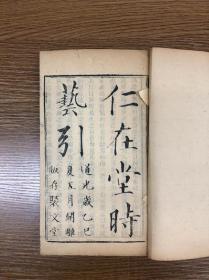 仁在堂時
藝引
道光歲乙巳
夏五月開雕
板存聚文堂